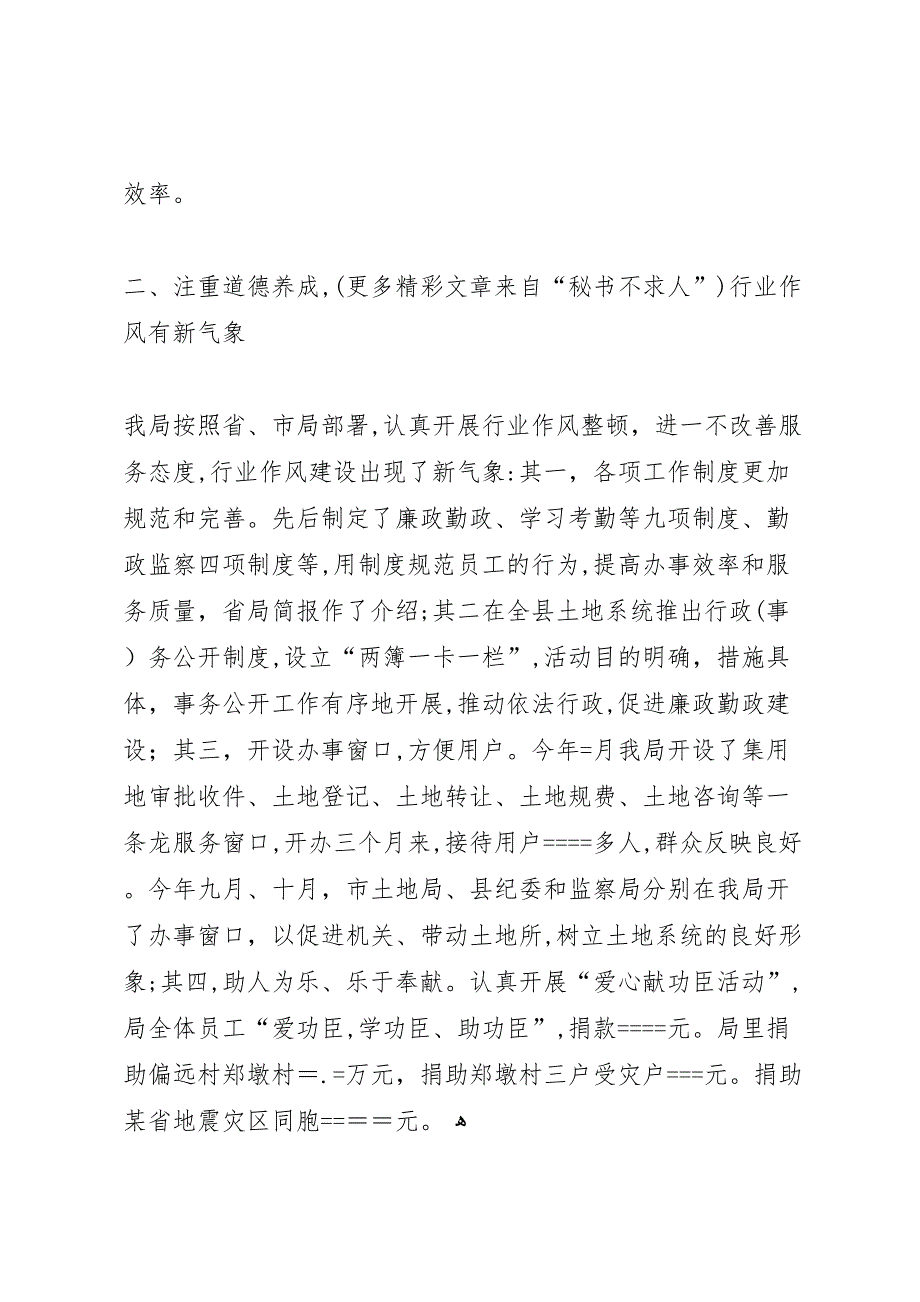 效率。
二、注重道德养成,(更多精彩文章来自“秘书不求人”)行业作
风有新气象
我局按照省、市局部署,认真开展行业作风整顿，进一不改善服
务态度,行业作风建设出现了新气象:其一，各项工作制度更加
规范和完善。先后制定了廉政勤政、学习考勤等九项制度、勤
政监察四项制度等,用制度规范员工的行为,提高办事效率和服
务质量，省局简报作了介绍;其二在全县土地系统推出行政(事
）务公开制度,设立“两簿一卡一栏”,活动目的明确，措施具
体，事务公开工作有序地开展,推动依法行政,促进廉政勤政建
设；其三，开设办事窗口,方便用户。今年=月我局开设了集用
地审批收件、土地登记、土地转让、土地规费、土地咨询等一
条龙服务窗口,开办三个月来,接待用户====多人,群众反映良好
。今年九月、十月，市土地局、县纪委和监察局分别在我局开
了办事窗口，以促进机关、带动土地所,树立土地系统的良好形
象;其四,助人为乐、乐于奉献。认真开展“爱心献功臣活动”,
局全体员工“爱功臣,学功臣、助功臣”,捐款====元。局里捐
助偏远村郑墩村＝.=万元，捐助郑墩村三户受灾户===元。捐助
某省地震灾区同胞==＝＝元。 ﻫ